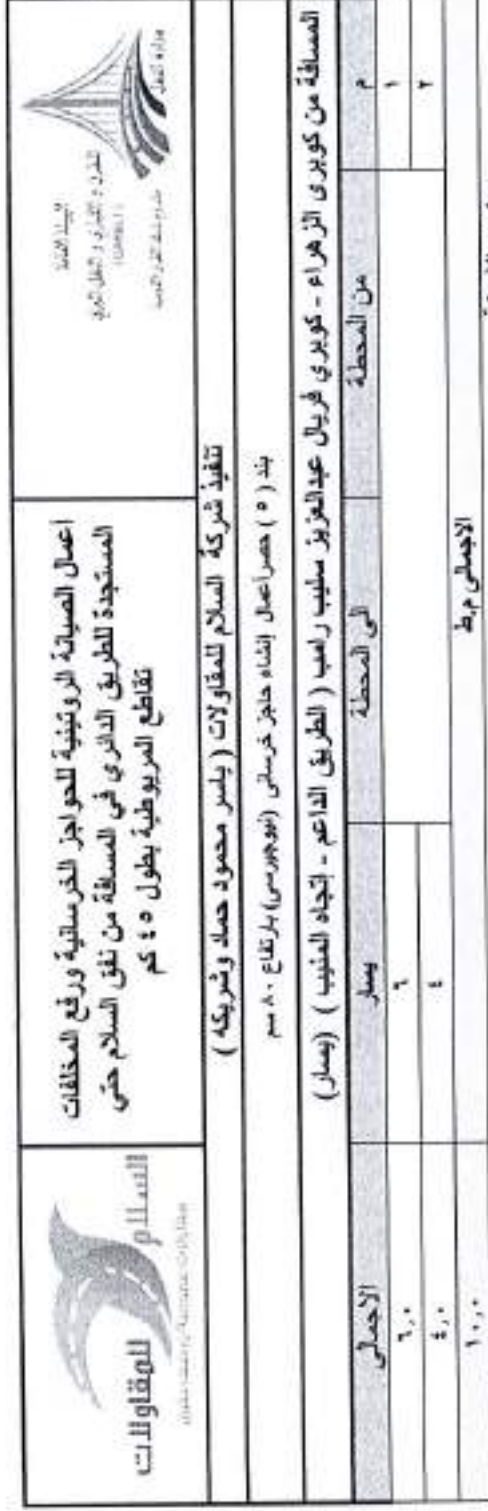 وزارة النقل
الهيئة العامة
للطرق و الكباري و النقل البري
(GARBLT)
أعمال الصيانة الروتينية للحواجز الخرسانية ورفع المخلفات
المستجدة للطريق الدائري في المسافة من نفق السلام حتي
تقاطع المريوطية بطول ٤٥ كم
السلام
للمقاولات
تنفيذ شركة السلام للمقاولات ( ياسر محمود حماد وشريكه )
بند ( ٥ ) حصر أعمال إنشاء حاجز خرساني (نيوجيرسي) بارتفاع ٨٠ سم
المسافة من كوبري الزهراء - كوبري فريال عبدالعزيز سليب رامب ( الطريق الداعم - إتجاه المنيب ) (يسار)
م من المحطة الى المحطة يسار الاجمالى
١ ٦ ٦,٠
٢ ٤ ٤,٠
الاجمالى م.ط ١٠,٠